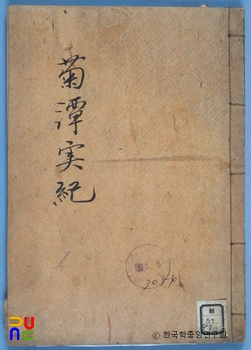 菊潭実紀
3044
PUNE
ⓒ 한국학중앙연구원